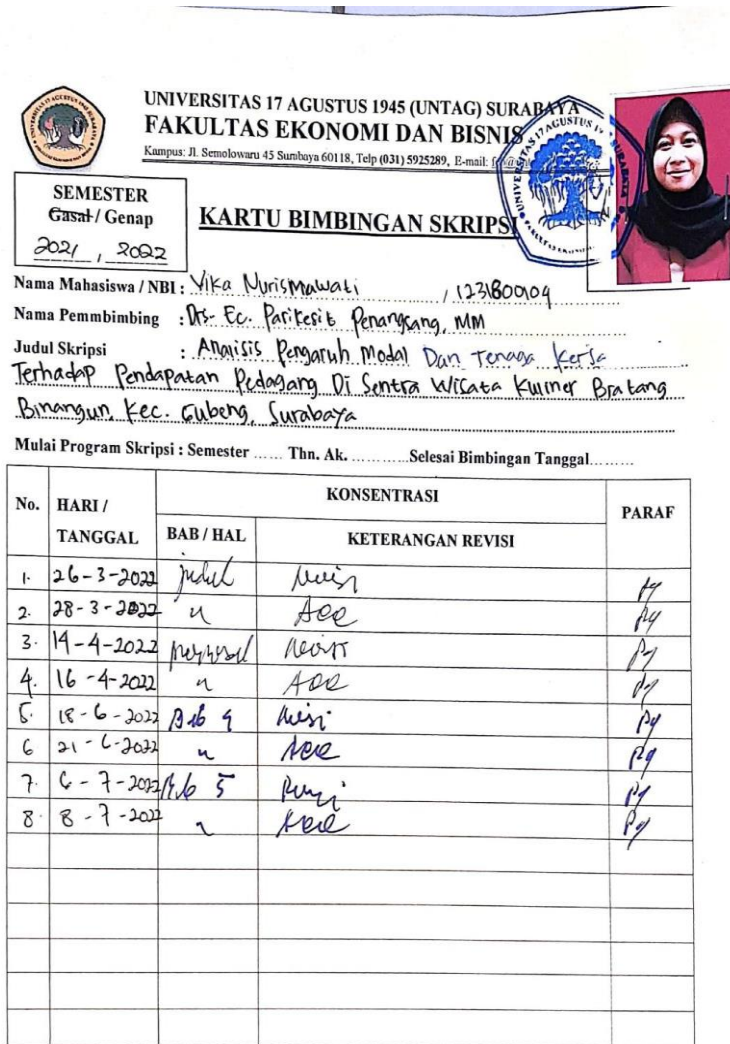 UNIVERSITAS 17 AGUSTUS 1945 (UNTAG) SURABAYA
FAKULTAS EKONOMI DAN BISNIS
Kampus: Jl. Semolowaru 45 Surabaya 60118, Telp (031) 5925289, E-mail:
SEMESTER
Gasal / Genap
2021 , 2022
KARTU BIMBINGAN SKRIPSI
Nama Mahasiswa / NBI : Vika Nurismawati , 1231800104
Nama Pemmbimbing : Drs. Ec. Parikesit Penangsang, MM
Judul Skripsi : Analisis Pengaruh Modal Dan Tenaga Kerja
Terhadap Pendapatan Pedagang Di Sentra Wisata Kuliner Bratang
Binangun, Kec. Gubeng, Surabaya
Mulai Program Skripsi : Semester ...... Thn. Ak. ............Selesai Bimbingan Tanggal.........
No. HARI / TANGGAL KONSENTRASI PARAF
BAB / HAL KETERANGAN REVISI
1. 26-3-2022 judul Revisi
2. 28-3-2022 " Acc
3. 14-4-2022 proposal Revisi
4. 16-4-2022 " Acc
5. 18-6-2022 Bab 4 Revisi
6 21-6-2022 " Acc
7. 6-7-2022 Bab 5 Revisi
8. 8-7-2022 " Acc